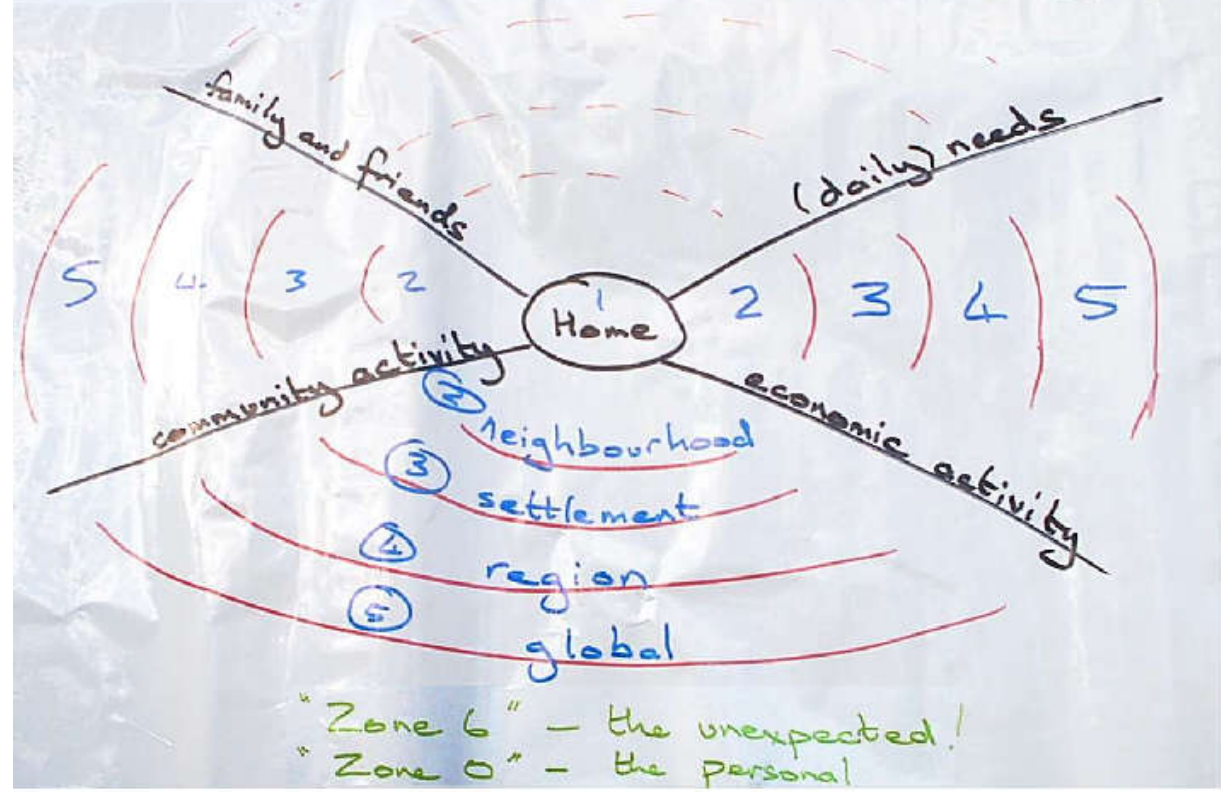 family and friends
(daily) needs
5 4 3 2 1 2 3 4 5
Home
community activity
economic activity
2 neighbourhood
3 settlement
4 region
5 global
"Zone 6" – the unexpected!
"Zone 0" – the personal